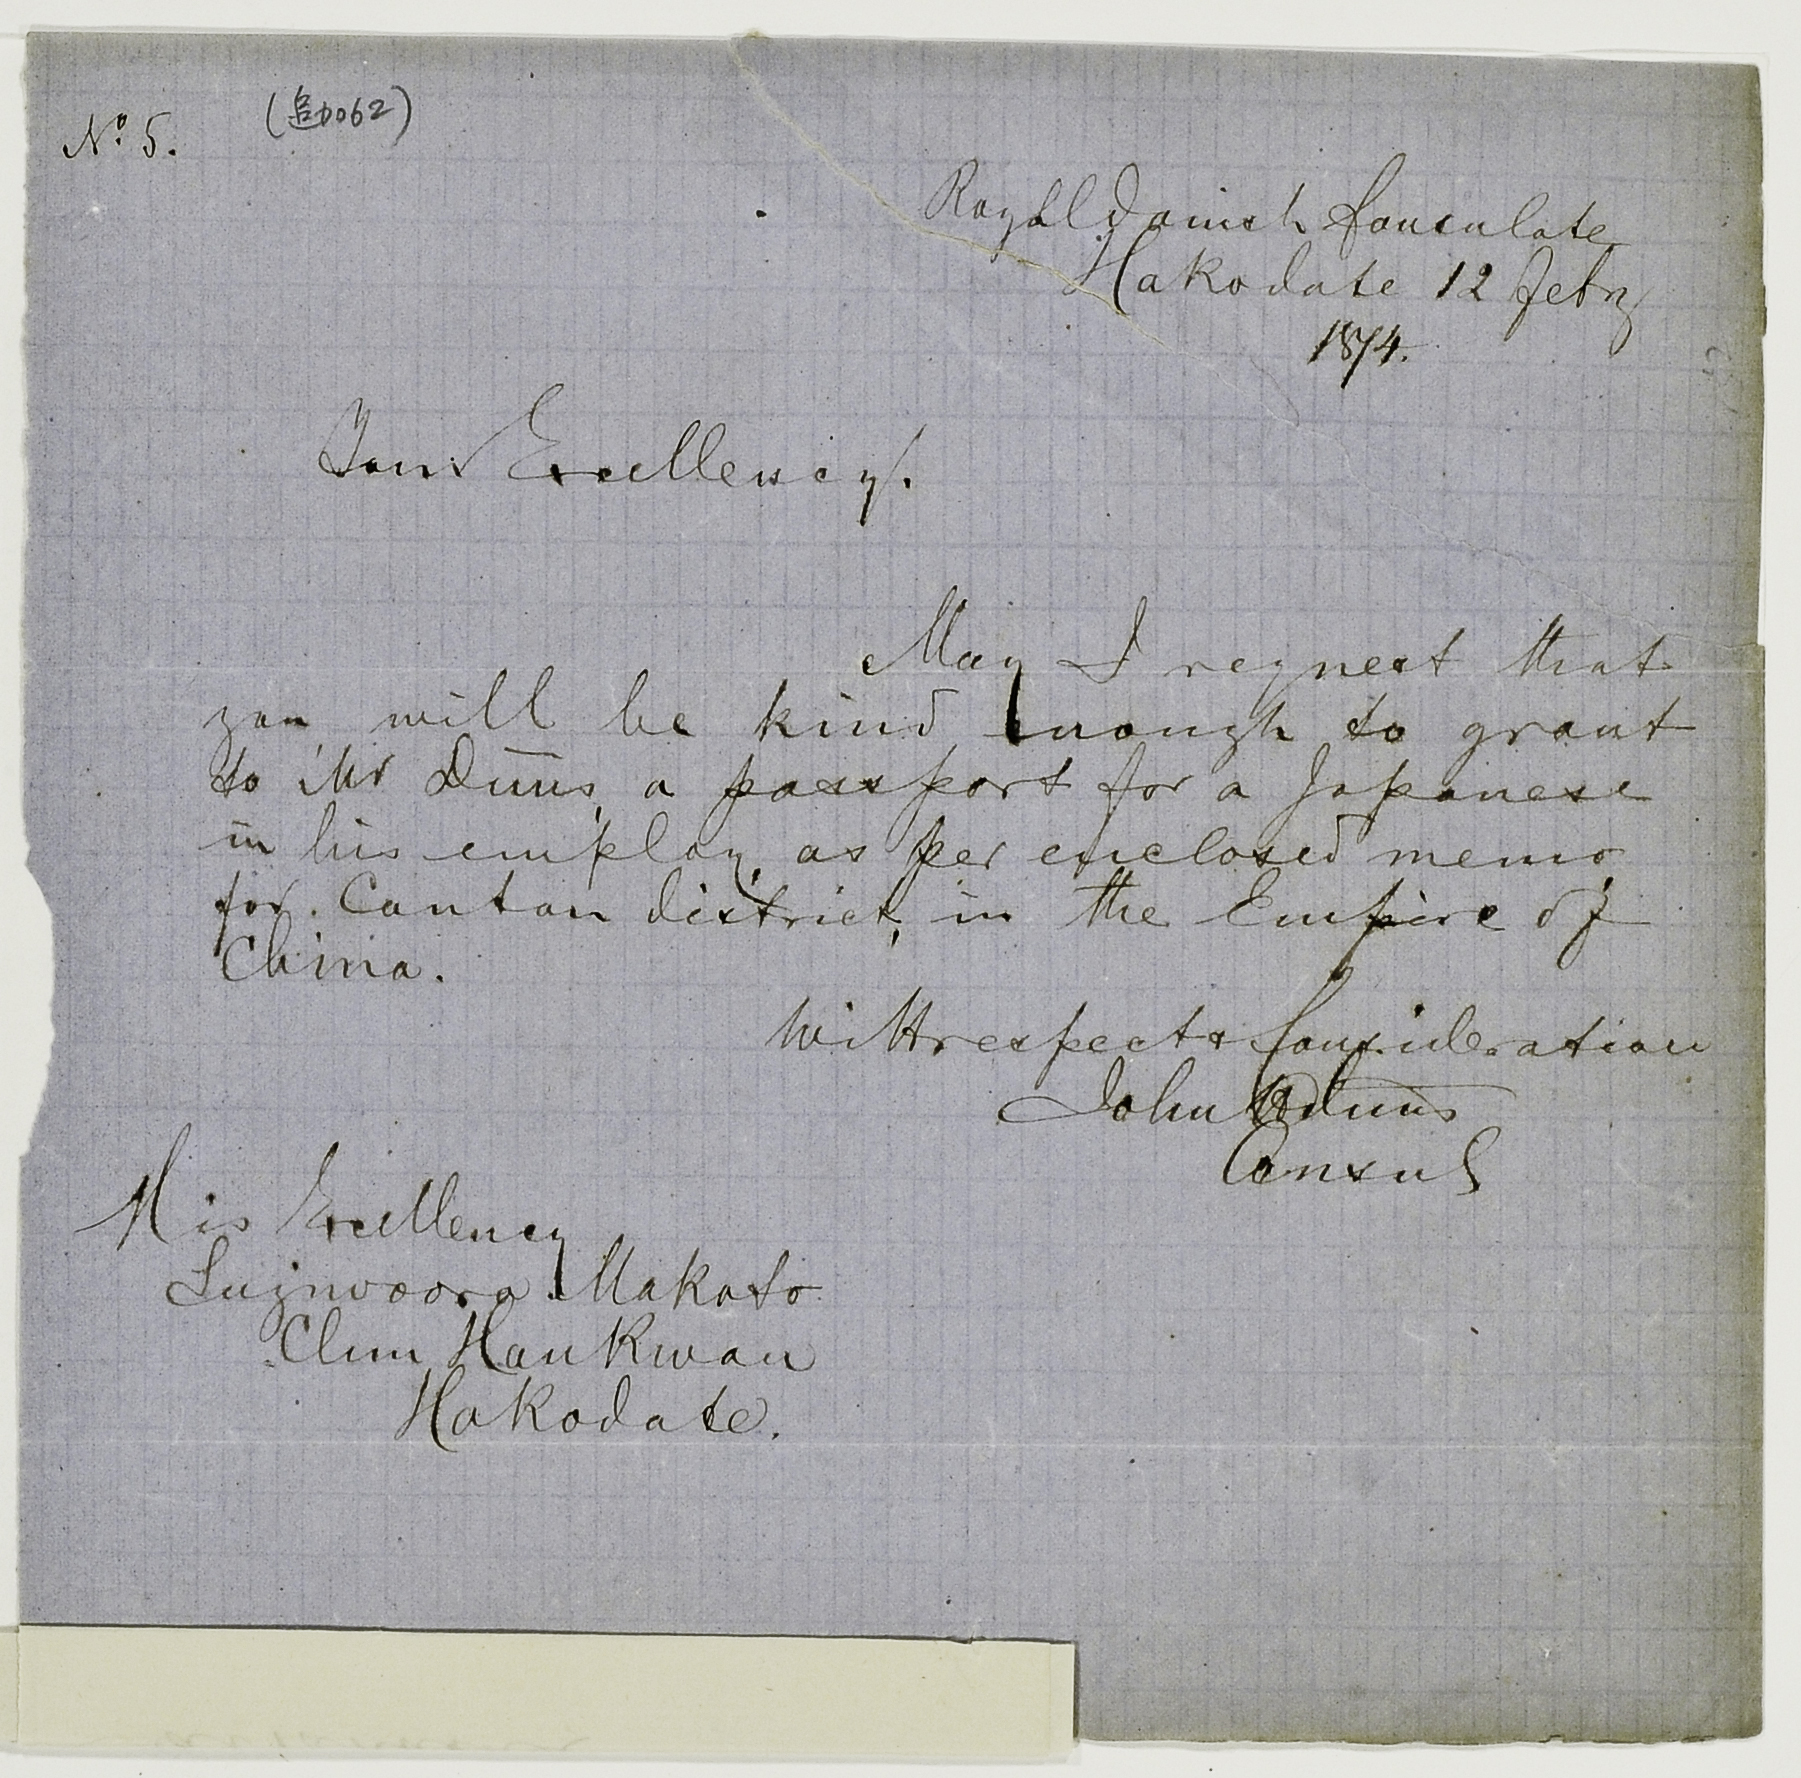 Nº 5. (追0062)
Royal Danish Consulate
Hakodate 12 Febry
1874.
Your Excellency.
May I request that
you will be kind enough to grant
to Mr Duus, a passport for a Japanese
in his employ, as per enclosed memo,
for Canton district, in the Empire of
China.
With respect & Consideration
John Duus
Consul
His Excellency
Sugnwoora Makoto
Chiu Hankwan
Hakodate.